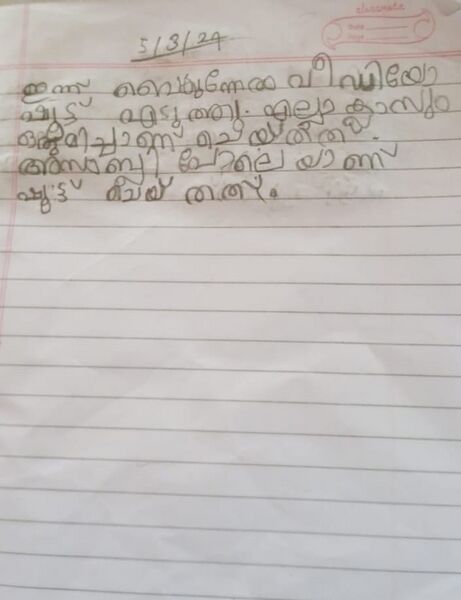 classmate
Date
Page
5/3/24
ഇന്ന് വൈകുന്നേരം വീഡിയോ
ഷൂട്ട് എടുത്തു. എല്ലാ ക്ലാസും
ഒരുമിച്ചാണ് ചെയ്തത്.
അസംബ്ലി പോലെ യാണ്
ഷൂട്ട് ചെയ് തത്.